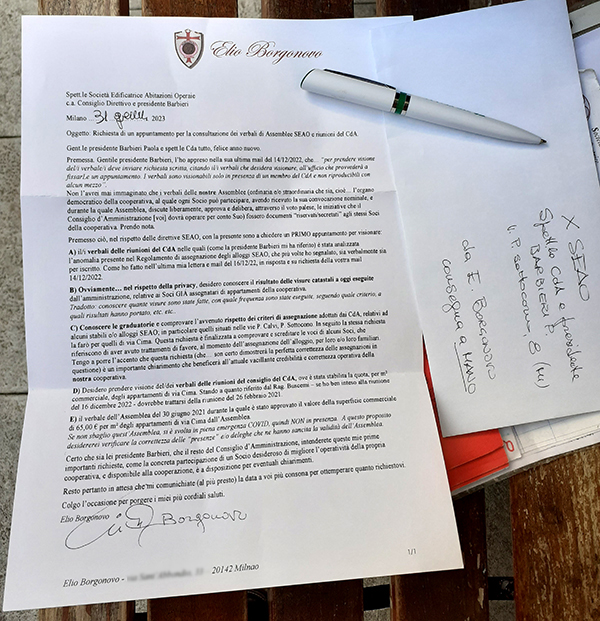 Elio Borgonovo
Spett.le Società Edificatrice Abitazioni Operaie
c.a. Consiglio Direttivo e presidente Barbieri
Milano 31 2023
Oggetto: Richiesta di un appuntamento per la consultazione dei verbali di Assemblee SEAO e riunioni del CdA
Gent.le presidente Barbieri Paola e spett.le Cda tutto, felice anno nuovo.
Premessa. Gentile presidente Barbieri, l'ho appreso nella sua ultima mail del 14/12/2022, che... "per prendere visione
del/i verbale/i deve inviare richiesta scritta, citando il/i verbali che desidera visionare, all'ufficio che provvederà a
fissarLe un appuntamento. I verbali sono visionabili solo in presenza di un membro del CdA e non riproducibili con
alcun mezzo".
Non l'avrei mai immaginato che i verbali delle nostre Assemblee (ordinaria e/o straordinaria che sia, cioè... l'organo
democratico della cooperativa, al quale ogni Socio può partecipare, avendo ricevuto la sua convocazione nominale, e
durante la quale Assemblea, discute liberamente, approva e delibera, attraverso il voto palese, le iniziative che il
Consiglio d'Amministrazione [voi] dovrà operare per conto Suo) fossero documenti "riservati/secretati" agli stessi Soci
della cooperativa. Prendo nota.
Premesso ciò, nel rispetto delle direttive SEAO, con la presente sono a chiedere un PRIMO appuntamento per visionare:
A) il/i verbali delle riunioni del CdA nelle quali (come la presidente Barbieri mi ha riferito) è stata analizzata
l'anomalia presente nel Regolamento di assegnazione degli alloggi SEAO, che più volte ho segnalato, sia verbalmente sia
per iscritto. Come ho fatto nell'ultima mia lettera e mail del 16/12/22, in risposta e su richiesta della vostra mail
14/12/2022.
B) Ovviamente... nel rispetto della privacy, desidero conoscere il risultato delle visure catastali a oggi eseguite
dall'amministrazione, relative ai Soci GIÀ assegnatari di appartamenti della cooperativa.
Tradotto: conoscere quante visure sono state fatte, con quale frequenza sono state eseguite, seguendo quale criterio, a
quali risultati hanno portato, etc. etc..
C) Conoscere le graduatorie e comprovare l'avvenuto rispetto dei criteri di assegnazione adottati dai CdA, relativi ad
alcuni stabili e/o alloggi SEAO, in particolare quelli situati nelle vie P. Calvi, P. Sottocorno. In seguito la stessa richiesta
la farò per quelli di via Cima. Questa richiesta è finalizzata a comprovare e screditare le voci di alcuni Soci, che
riferiscono di aver avuto trattamenti di favore, al momento dell'assegnazione dell'alloggio, per loro e/o loro familiari.
Tengo a porre l'accento che questa richiesta (che... son certo dimostrerà la perfetta correttezza delle assegnazioni in
questione) è un importante chiarimento che beneficerà all'attuale vacillante credibilità e correttezza operativa della
nostra cooperativa.
D) Desidero prendere visione del/dei verbali delle riunioni del consiglio del CdA, ove è stata stabilita la quota, per m²
commerciale, degli appartamenti di via Cima. Stando a quanto riferito dal Rag. Buscemi – se ho ben inteso alla riunione
del 16 dicembre 2022 - dovrebbe trattarsi della riunione del 26 febbraio 2021.
E) il verbale dell'Assemblea del 30 giugno 2021 durante la quale è stato approvato il valore della superficie commerciale
di 65,00 € per m² degli appartamenti di via Cima dall'Assemblea.
Se non sbaglio quest'Assemblea, si è svolta in piena emergenza COVID, quindi NON in presenza. A questo proposito
desidererei verificare la correttezza delle "presenze" e/o deleghe che ne hanno sancita la validità dell'Assemblea.
Certo che sia lei presidente Barbieri, che il resto del Consiglio d'Amministrazione, intenderete queste mie prime
importanti richieste, come la concreta partecipazione di un Socio desideroso di migliorare l'operatività della propria
cooperativa, e disponibile alla cooperazione, è a disposizione per eventuali chiarimenti.
Resto pertanto in attesa che mi comunichiate (al più presto) la data a voi più consona per ottemperare quanto richiestovi.
Colgo l'occasione per porgere i miei più cordiali saluti.
Elio Borgonovo
Borgonovo
1/1
Elio Borgonovo - 20142 Milnao
X SEAO
Spett.le CdA e presidente
BARBIERI P.
V. P. Sottocorno, 8 (MI)
da E. BORGONOVO
consegna a MANO